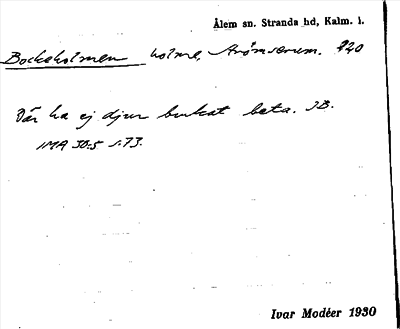 Ålem sn. Stranda hd, Kalm. l.
Bockeholmen holme, Strömserum. 720
Där ha ej djur brukat beta. IB.
IMA 30:5 s.73.
Ivar Modéer 1930